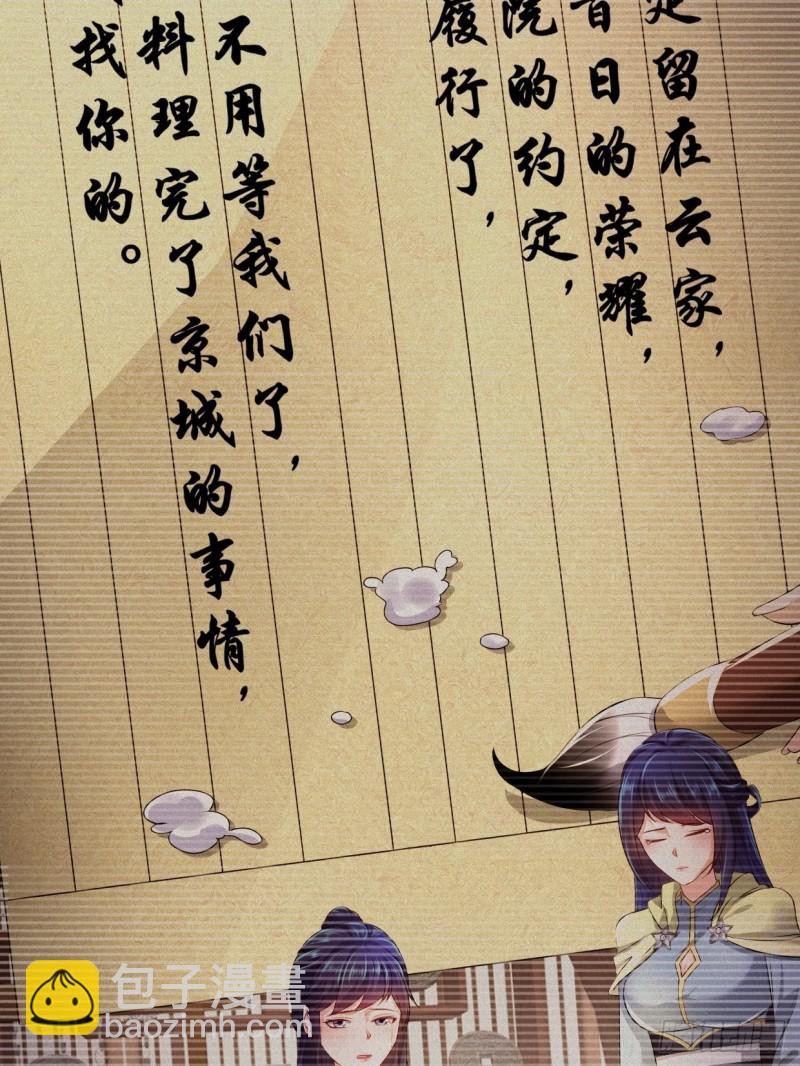 定留在云家，
昔日的荣耀，
院的约定，
履行了，
不用等我们了，
料理完了京城的事情，
找你的。
包子漫畫
baozimh.com